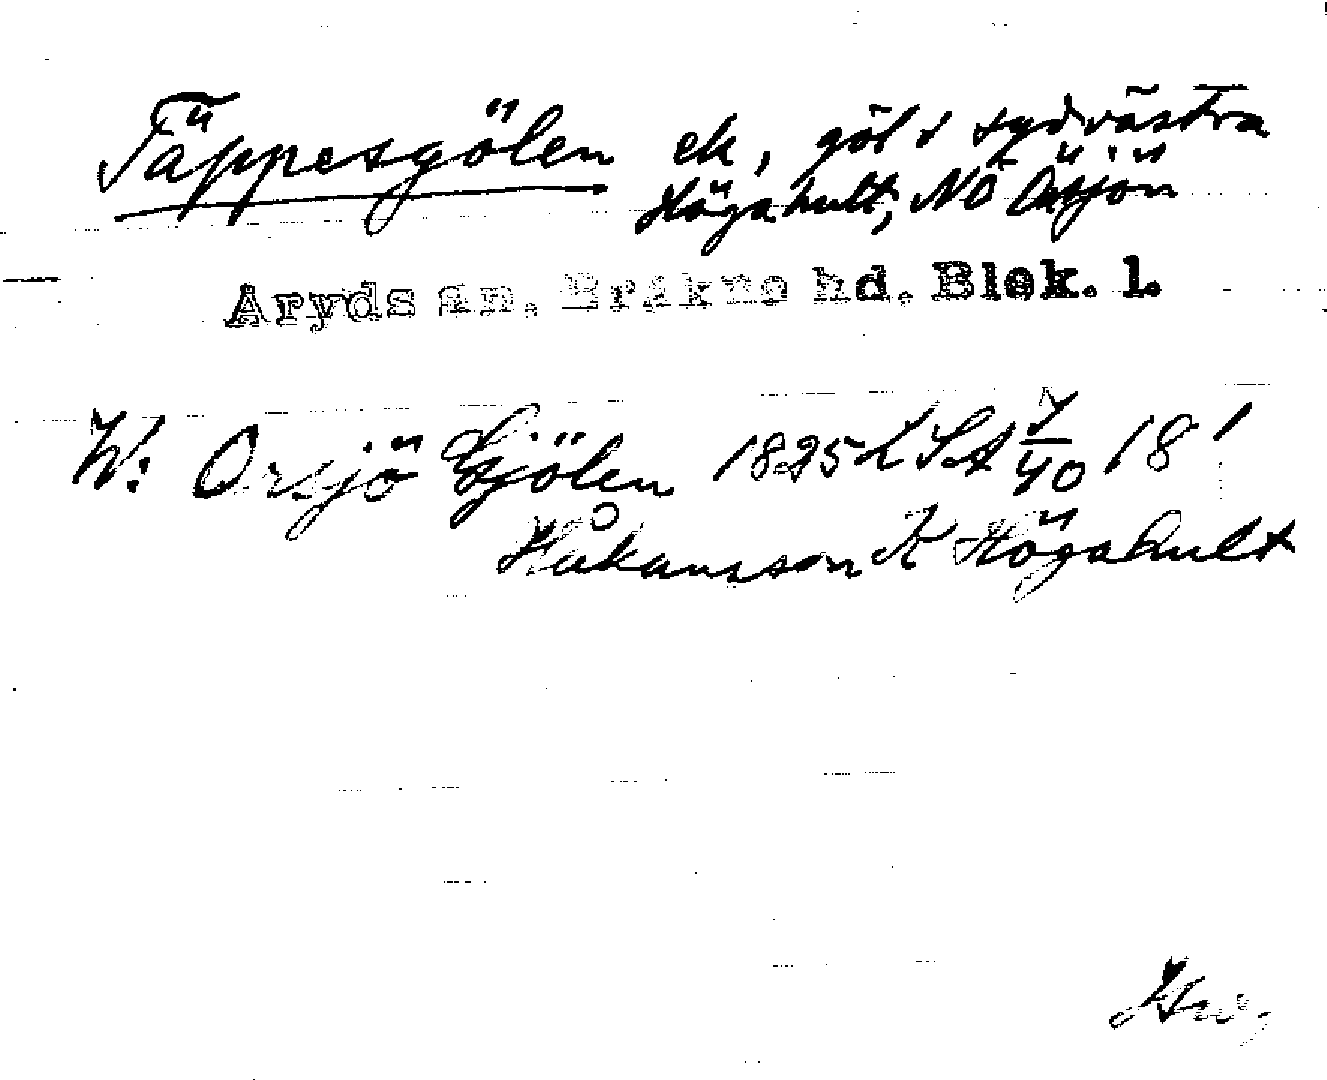 Täppesgölen ek, göl i sydvästra
Högahult, NÖ Örsjön
Aryds sn. Bräkne hd. Blek. l.
W: Orsjö Gjölen 1825 LSA 7/40 18'
Håkansson K Högahult